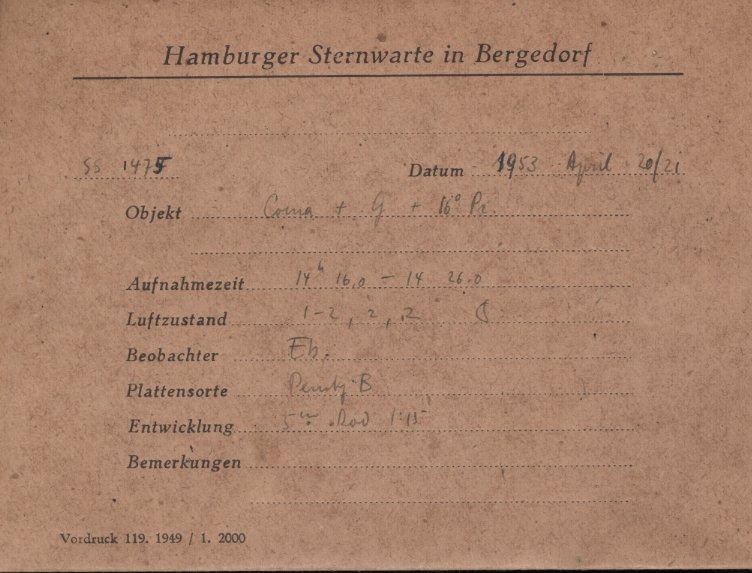 Hamburger Sternwarte in Bergedorf
SS 1475 Datum 1953 April 20/21
Objekt Coma + G + 16° Pr.
Aufnahmezeit 14h 16.0 – 14 26.0
Luftzustand 1-2, 2, 2 ☾
Beobachter
Plattensorte B
Entwicklung 5m Rod 1:15
Bemerkungen
Vordruck 119. 1949 / 1. 2000